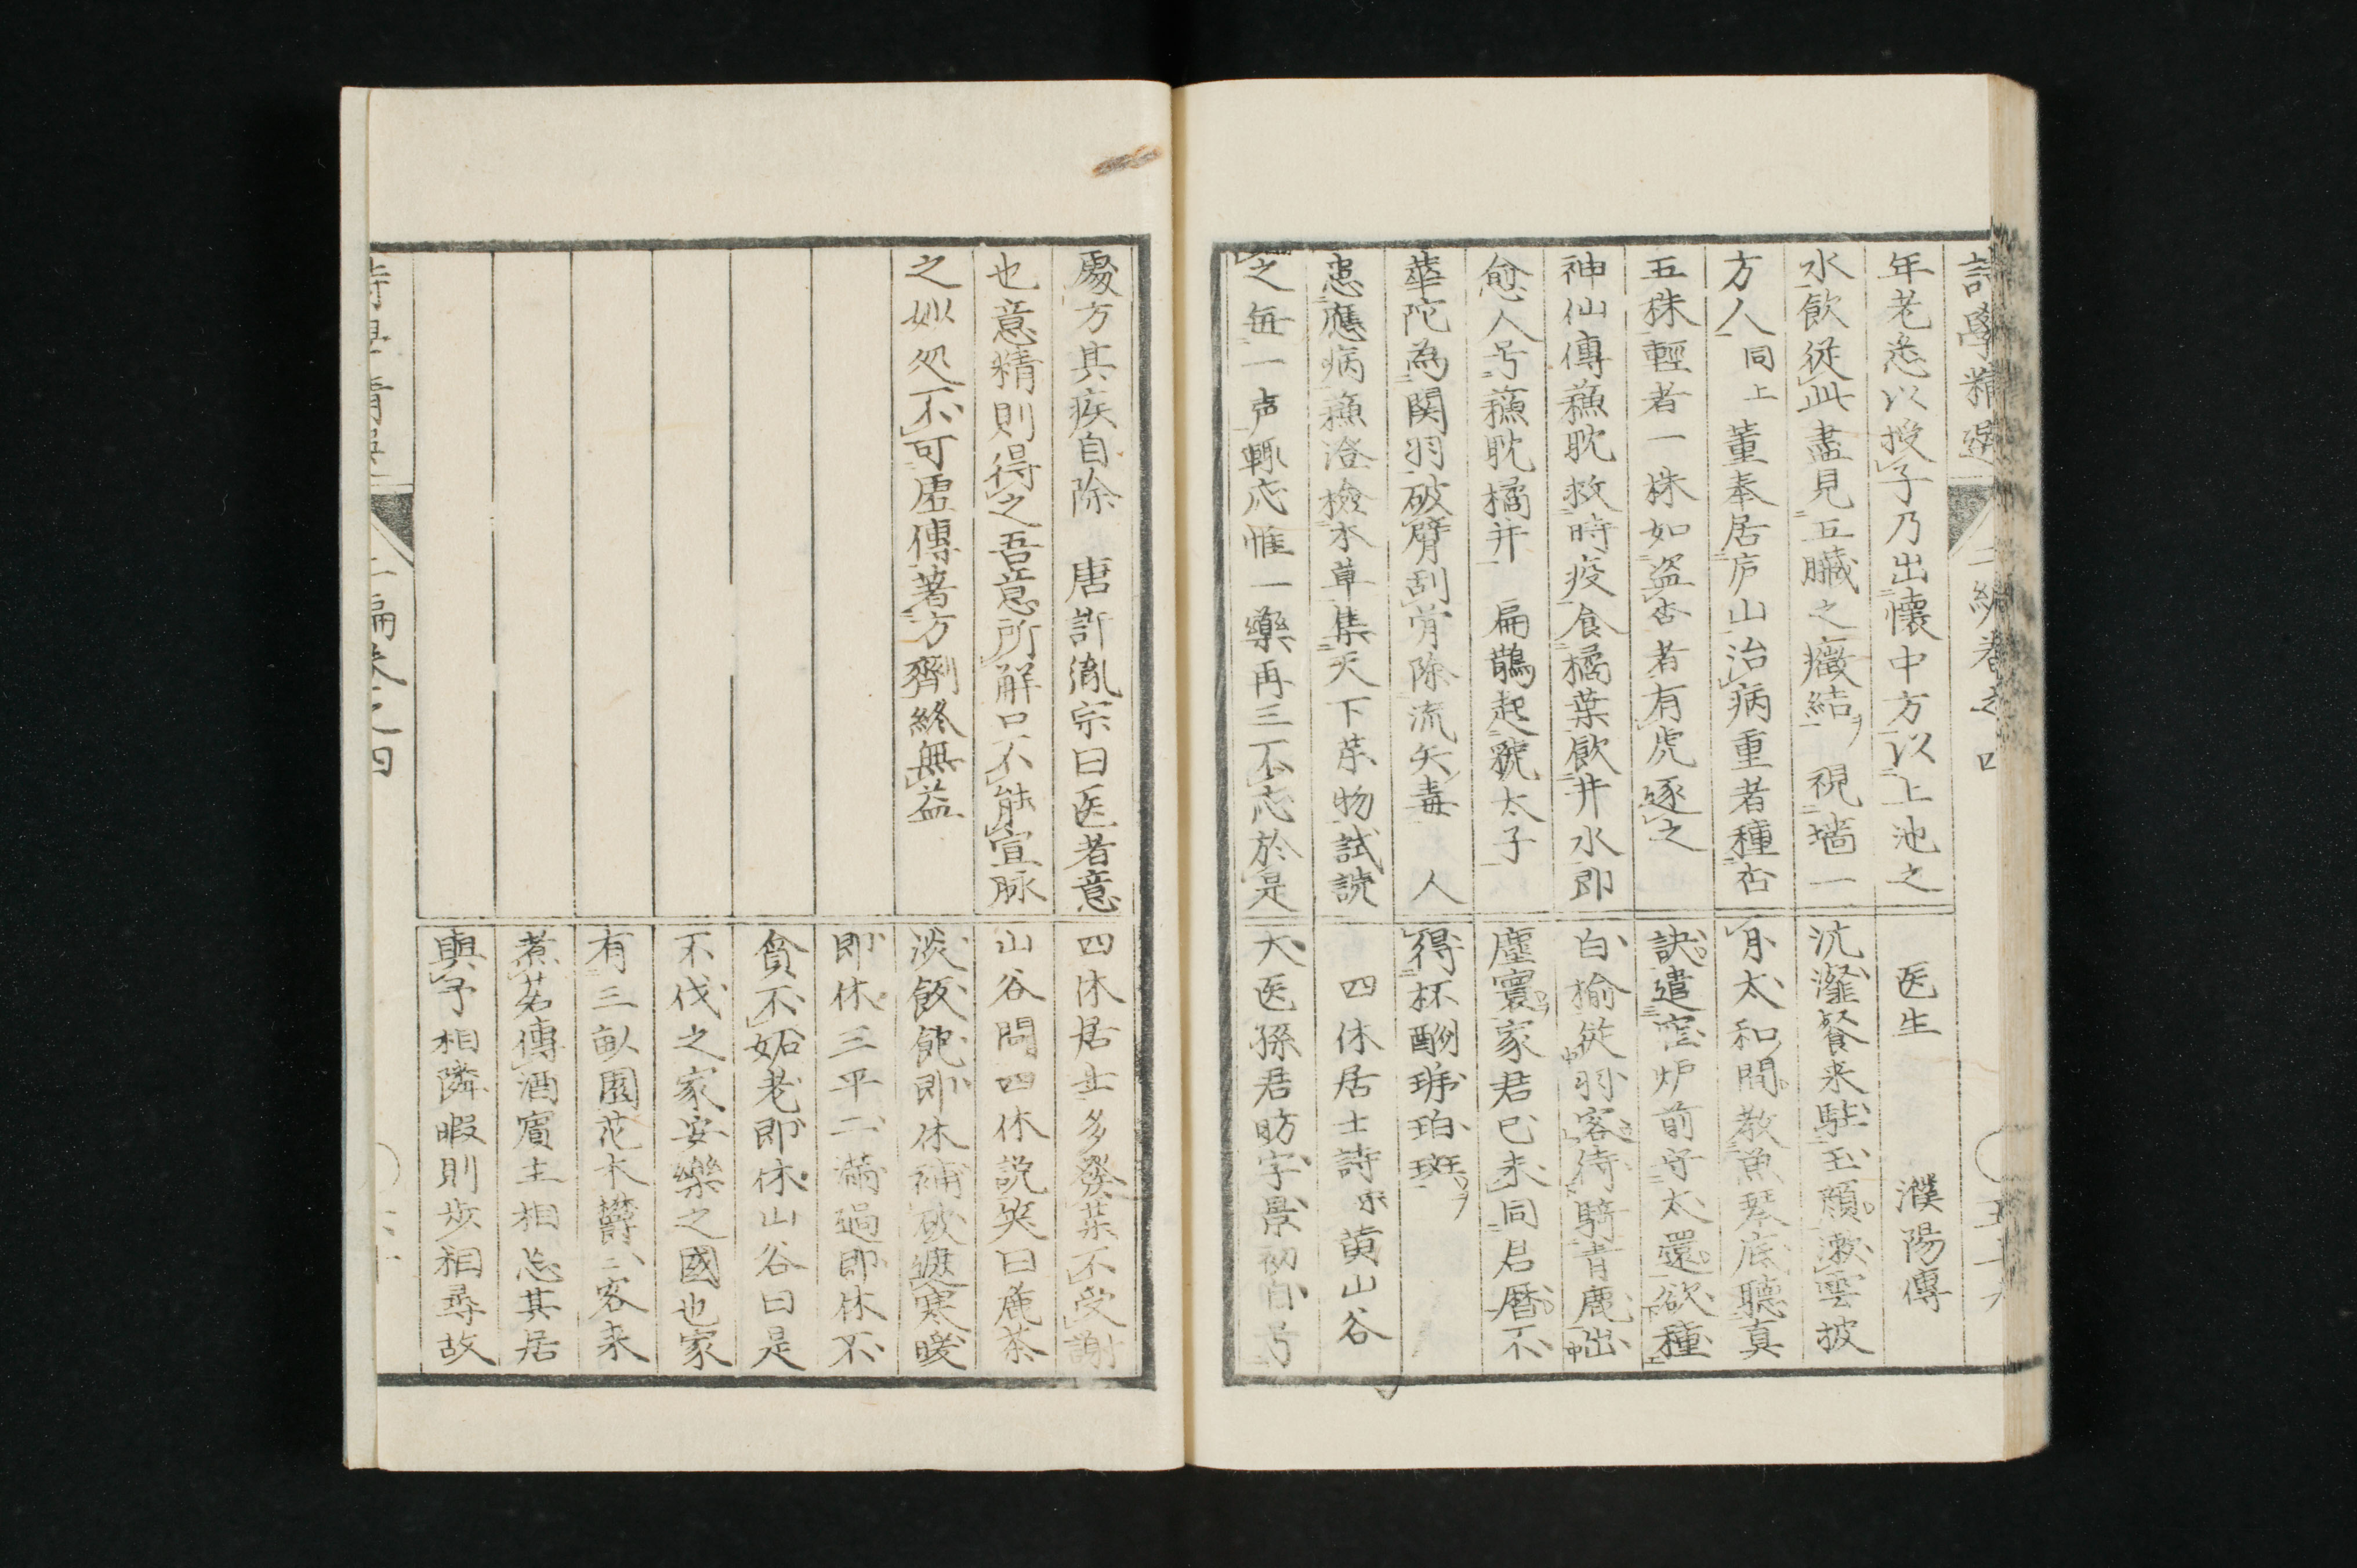 年老悉以授子乃出懐中方以上池之
水飲従此盡見五臓之癥結視墻一
方人同上董奉居庐山治病重者種杏
五株輕者一株如盗杏者有虎逐之
神仙傳蘓耽救時疫食橘葉飲井水即
愈人号蘓耽橘井扁鵲起虢太子
華陀為関羽破臂刮骨除流矢毒人
患應病蘓澄檢本草集天下茱物試読
之每一声輙応惟一藥再三不応於是
医生濮陽傳
沆瀣餐来駐玉顔漱雲披
月太和間教魚琴底聴真
訣遣窓炉前守太還欲種
白榆従羽客待騎青鹿出
塵寰家君已未同君暦不
得杯酬琥珀斑
四休居士詩宋黄山谷
大医孫君昉字景初自号
處方其疾自除唐許胤宗曰医者意
也意精則得之吾意所解口不能宣脉
之妙処不可虚傳著方劑終無益
四休居士多發茱不受謝
山谷問四休説笑曰麁茶
淡飯飽即休補破遮寒暖
即休三平二滿過即休不
貪不妬老即休山谷曰是
不伐之家安樂之國也家
有三畝園花木欝〻客来
煮茗傳酒賓主相忘其居
與予相隣暇則歩相尋故